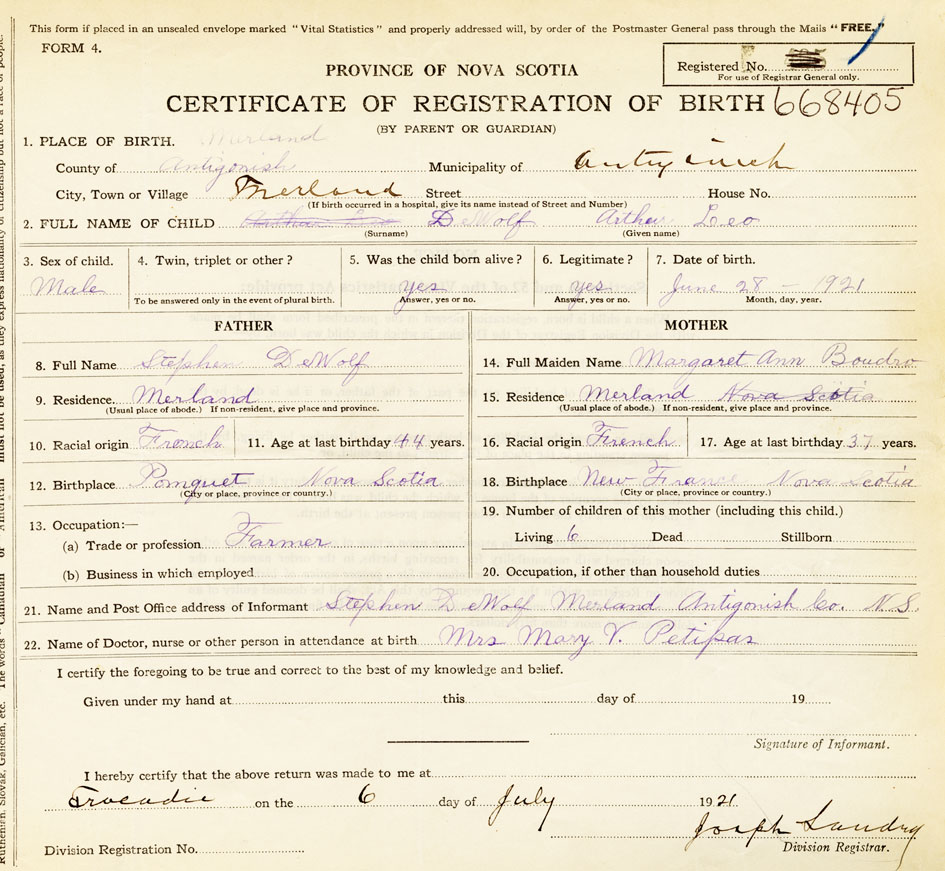 This form if placed in an unsealed envelope marked "Vital Statistics" and properly addressed will, by order of the Postmaster General pass through the Mails "FREE."
FORM 4.
Registered No.
For use of Registrar General only.
PROVINCE OF NOVA SCOTIA
CERTIFICATE OF REGISTRATION OF BIRTH 668405
(BY PARENT OR GUARDIAN)
1. PLACE OF BIRTH. Merland
County of Antigonish Municipality of Antigonish
City, Town or Village Merland Street House No.
(If birth occurred in a hospital, give its name instead of Street and Number)
2. FULL NAME OF CHILD Arthur Leo DeWolf Arthur Leo
(Surname) (Given name)
3. Sex of child. 4. Twin, triplet or other? 5. Was the child born alive? 6. Legitimate? 7. Date of birth.
Male yes yes June 28 - 1921
To be answered only in the event of plural birth. Answer, yes or no. Answer, yes or no. Month, day, year.
FATHER MOTHER
8. Full Name Stephen DeWolf 14. Full Maiden Name Margaret Ann Boudro
9. Residence. Merland 15. Residence Merland Nova Scotia
(Usual place of abode.) If non-resident, give place and province. (Usual place of abode.) If non-resident, give place and province.
10. Racial origin French 11. Age at last birthday 44 years. 16. Racial origin French 17. Age at last birthday 37 years.
12. Birthplace Pomquet Nova Scotia 18. Birthplace New France Nova Scotia
(City or place, province or country.) (City or place, province or country.)
13. Occupation:— 19. Number of children of this mother (including this child.)
(a) Trade or profession Farmer Living 6 Dead Stillborn
(b) Business in which employed 20. Occupation, if other than household duties
21. Name and Post Office address of Informant Stephen DeWolf Merland Antigonish Co. N.S.
22. Name of Doctor, nurse or other person in attendance at birth Mrs Mary V. Petipas
I certify the foregoing to be true and correct to the best of my knowledge and belief.
Given under my hand at this day of 19
Signature of Informant.
I hereby certify that the above return was made to me at
Tracadie on the 6 day of July 1921
Joseph Landry
Division Registration No. Division Registrar.